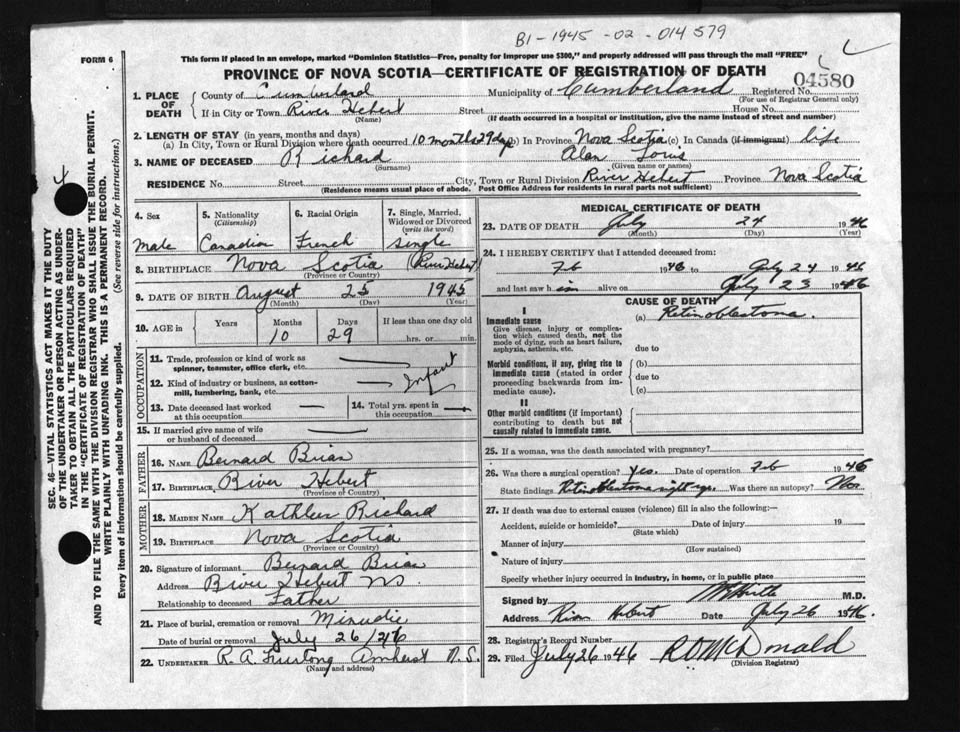 B1-1945-02-014579
FORM 6
This form if placed in an envelope, marked "Dominion Statistics—Free, penalty for improper use $300," and properly addressed will pass through the mail "FREE"
PROVINCE OF NOVA SCOTIA—CERTIFICATE OF REGISTRATION OF DEATH
04580
1. PLACE OF DEATH
County of Cumberland Municipality of Cumberland Registered No.
(For use of Registrar General only)
If in City or Town River Hebert Street House No.
(Name) (If death occurred in a hospital or institution, give the name instead of street and number)
2. LENGTH OF STAY (in years, months and days)
(a) In City, Town or Rural Division where death occurred 10 months 29 days (b) In Province Nova Scotia (c) In Canada (if immigrant) life
3. NAME OF DECEASED Richard Alan Louis
(Surname) (Given name or names)
RESIDENCE No. Street City, Town or Rural Division River Hebert Province Nova Scotia
(Residence means usual place of abode. Post Office Address for residents in rural parts not sufficient)
4. Sex
Male
5. Nationality
(Citizenship)
Canadian
6. Racial Origin
French
7. Single, Married, Widowed or Divorced
(write the word)
Single
8. BIRTHPLACE Nova Scotia (River Hebert)
(Province or Country)
9. DATE OF BIRTH August 25 1945
(Month) (Day) (Year)
10. AGE in Years Months Days If less than one day old
10 29 hrs. or min.
OCCUPATION
11. Trade, profession or kind of work as spinner, teamster, office clerk, etc.
12. Kind of industry or business, as cotton-mill, lumbering, bank, etc. Infant
13. Date deceased last worked at this occupation
14. Total yrs. spent in this occupation
15. If married give name of wife or husband of deceased
FATHER
16. NAME Bernard Brian
17. BIRTHPLACE River Hebert
(Province of Country)
MOTHER
18. MAIDEN NAME Kathleen Richard
19. BIRTHPLACE Nova Scotia
(Province or Country)
20. Signature of informant Bernard Brian
Address River Hebert NS.
Relationship to deceased Father
21. Place of burial, cremation or removal Minudie
Date of burial or removal July 26/46
22. UNDERTAKER R. A. Furlong Amherst N.S.
(Name and address)
MEDICAL CERTIFICATE OF DEATH
23. DATE OF DEATH July 24 1946
(Month) (Day) (Year)
24. I HEREBY CERTIFY that I attended deceased from:
Feb 1946 to July 24 1946
and last saw him alive on July 23 1946
CAUSE OF DEATH
I
Immediate cause (a) Retinoblastoma.
Give disease, injury or complication which caused death, not the mode of dying, such as heart failure, asphyxia, asthenia, etc.
due to
Morbid conditions, if any, giving rise to immediate cause (stated in order proceeding backwards from immediate cause).
(b)
due to
(c)
II
Other morbid conditions (if important) contributing to death but not causally related to immediate cause.
25. If a woman, was the death associated with pregnancy?
26. Was there a surgical operation? Yes. Date of operation Feb 1946
State findings Retinoblastoma right eye. Was there an autopsy?
27. If death was due to external causes (violence) fill in also the following:—
Accident, suicide or homicide? Date of injury 19
(State which)
Manner of injury
(How sustained)
Nature of injury
Specify whether injury occurred in industry, in home, or in public place
Signed by M.D.
Address River Hebert Date July 26 1946.
28. Registrar's Record Number
29. Filed July 26 1946 R D McDonald
(Division Registrar)
SEC. 46—VITAL STATISTICS ACT MAKES IT THE DUTY
OF THE UNDERTAKER OR PERSON ACTING AS UNDERTAKER TO OBTAIN ALL THE PARTICULARS REQUIRED
IN THE "CERTIFICATE OF REGISTRATION OF DEATH"
AND TO FILE THE SAME WITH THE DIVISION REGISTRAR WHO SHALL ISSUE THE BURIAL PERMIT.
WRITE PLAINLY WITH UNFADING INK. THIS IS A PERMANENT RECORD.
Every item of information should be carefully supplied. (See reverse side for instructions.)